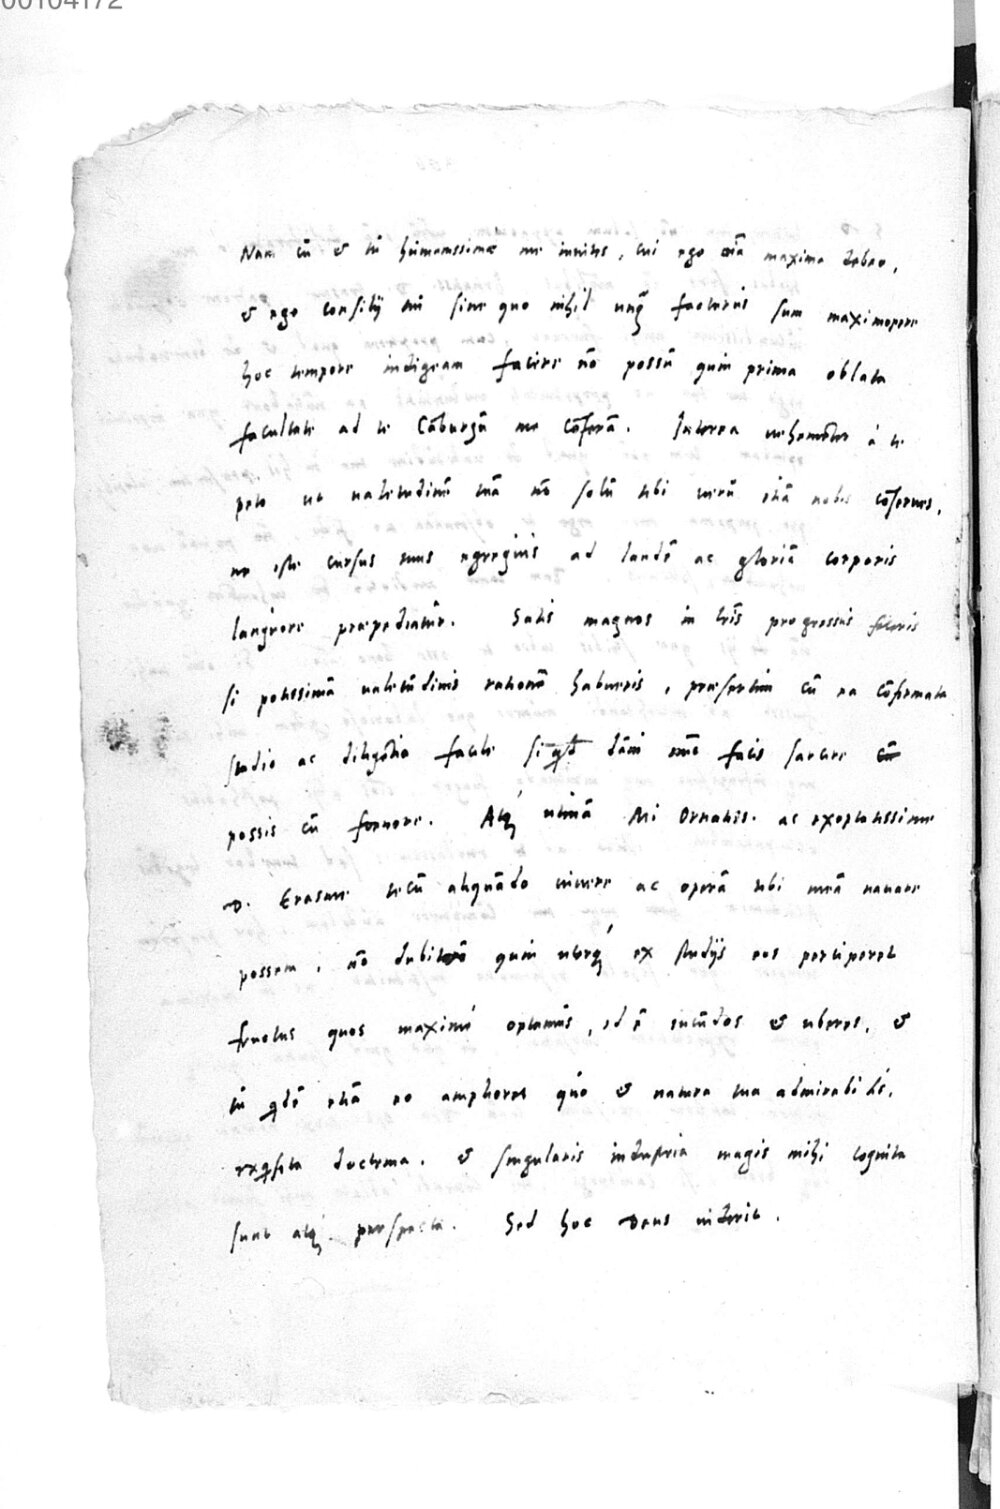 00104172
Nam cū & tu humanissime me inuites, cui ego oīa maxima debeo,
& ego consilij tui sine quo nihil unq̃ facturus sum maximopere
hoc tempore indigeam facere nō possū quin prima oblata
facultate ad te Cāburgā me cōferā. Interea uehemēter à te
peto ut ualetudinē tuā nō solū tibi uerū etiā nobis cōserues,
ne iste cursus tuus egregius ad laudē ac gloriā corporis
languore præpediatur. Satis magnos in lrīs progressus feceris
si potissimū ualetudinis rationē habueris, præsertim cū ea cōfirmata
studio ac diligētia facile si qd dāni facis sarcire
possis cū foenore. Atq; utinā Mi Ornatiss. ac exoptatissime
D. Erasme tecū aliquādo uiuere ac operā tibi meā nauare
possem, nō dubito quin uterq; ex studijs eos perciperet
fructus quos maximè optamus, id ē iucūdos & uberes, &
tū qdē etiā eo ampliores quo & natura tua admirabilis,
exqsita doctrina, & singularis industria magis mihi cognita
sunt atq; perspecta. Sed hoc Deus uiderit.